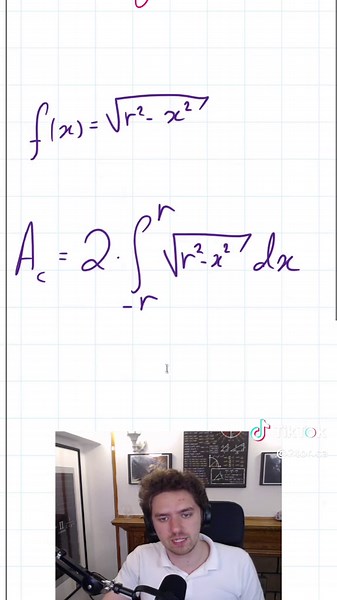 f(x) = √(r² - x²)
A_c = 2 · ∫_{-r}^{r} √(r² - x²) dx
TikTok